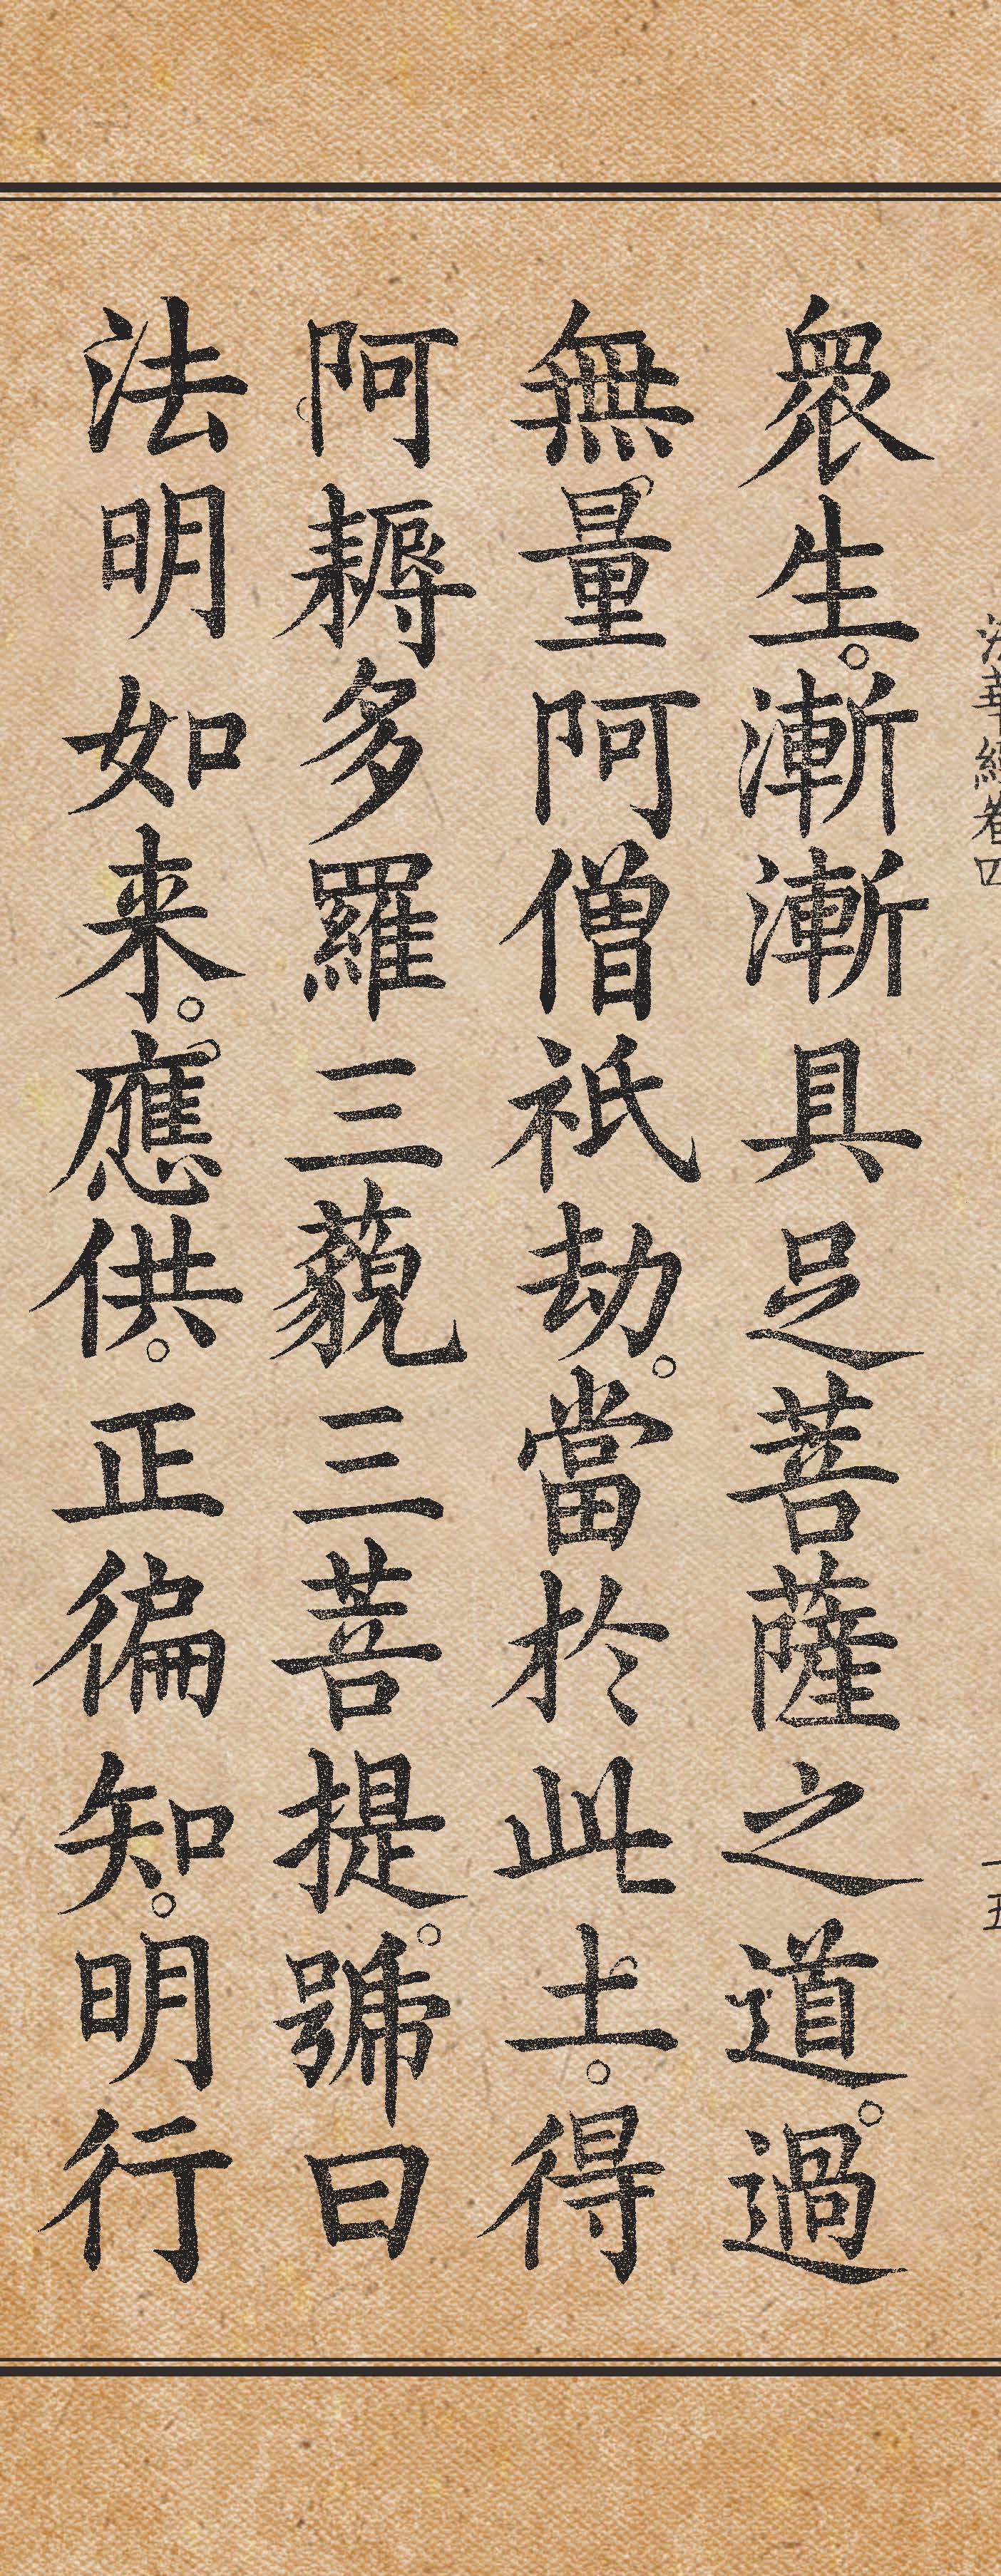 法華經卷四
眾生。漸漸具足菩薩之道。過
無量阿僧祇劫。當於此土。得
阿耨多羅三藐三菩提。號曰
法明如来。應供。正徧知。明行